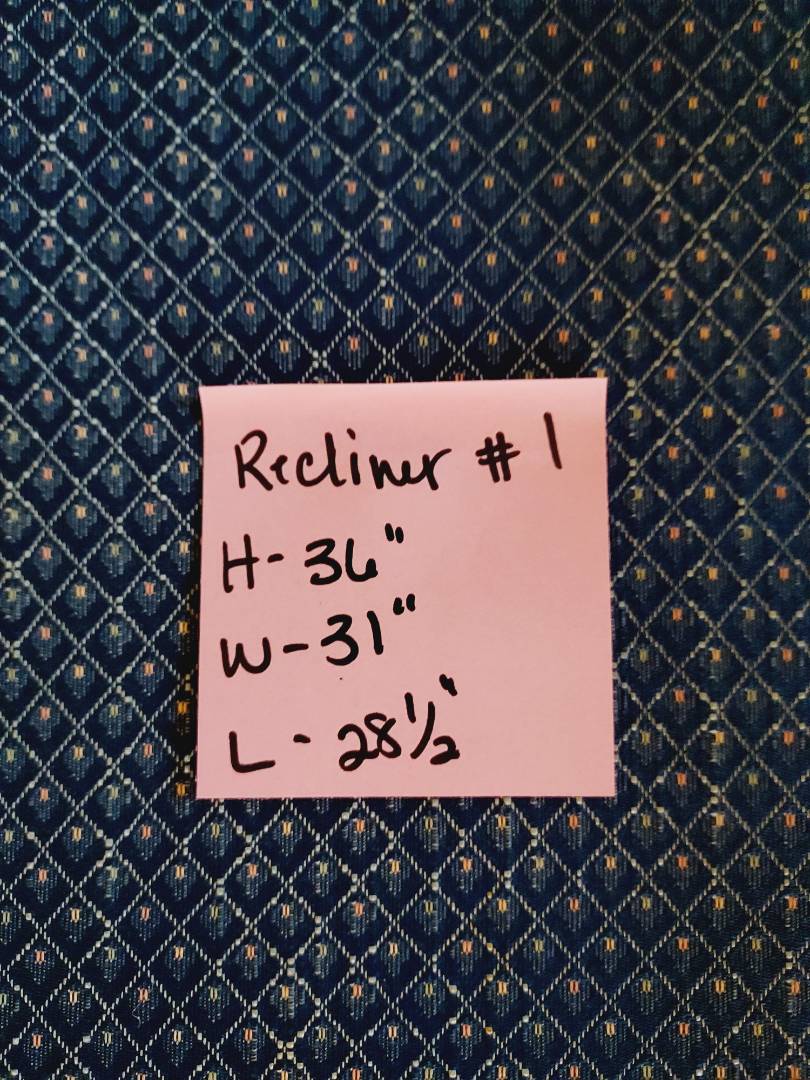 Recliner # 1
H- 36"
W-31"
L - 28 1/2"